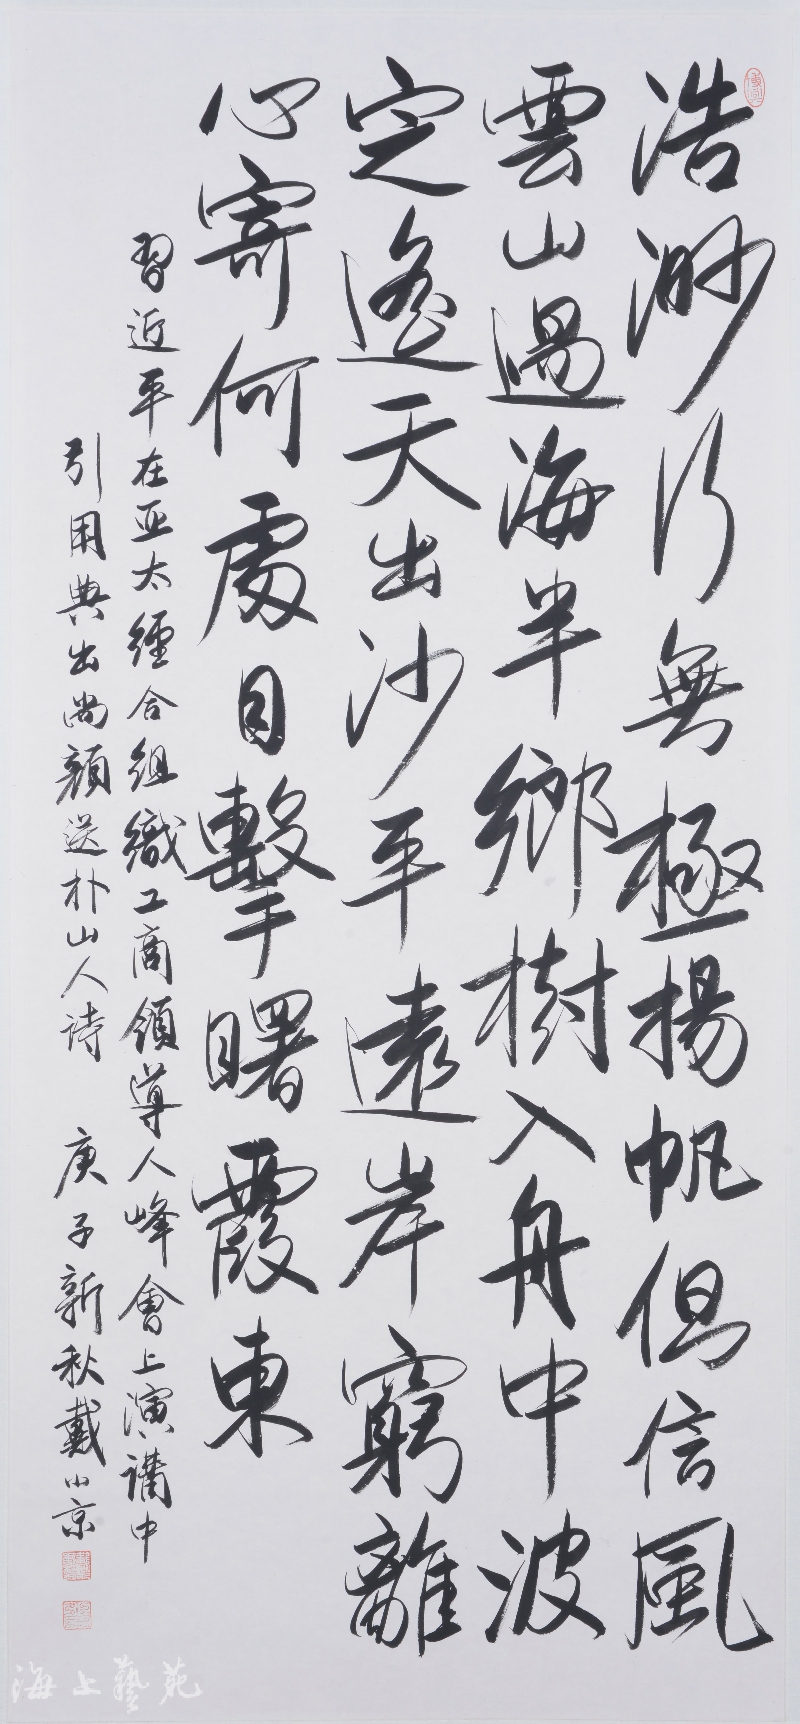 浩渺行無極揚帆但信風
雲山過海半鄉樹入舟中波
定遙天出沙平遠岸窮離
心寄何處目擊曙霞東
習近平在亚太經合组織工商領導人峰會上演講中
引用典出尚顏送朴山人诗 庚子新秋戴小京
海上藝苑